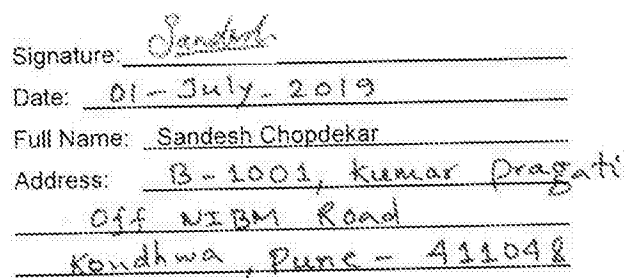 Signature: Sandesh
Date: 01-July-2019
Full Name: Sandesh Chopdekar
Address: B-1001, Kumar Pragati
Off NIBM Road
Kondhwa, Pune - 411048